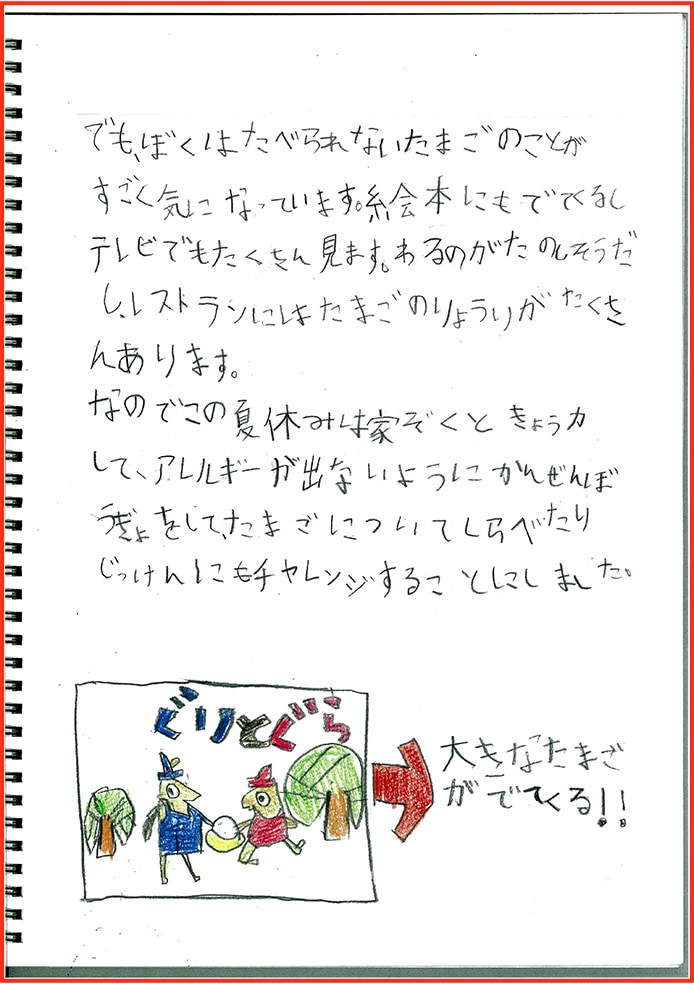 でも、ぼくはたべられないたまごのことが
すごく気になっています。絵会本にもでてくるし
テレビでもたくさん見ます。わるのがたのしそうだ
し、レストランにはたまごのりょうりがたくさ
んあります。
なのでこの夏休みは家ぞくときょう力
して、アレルギーが出ないようにかんぜんぼ
うぎょをして、たまごについてしらべたり
じっけんにもチャレンジすることにしました。
ぐりとぐら
大きなたまご
がでてくる!!